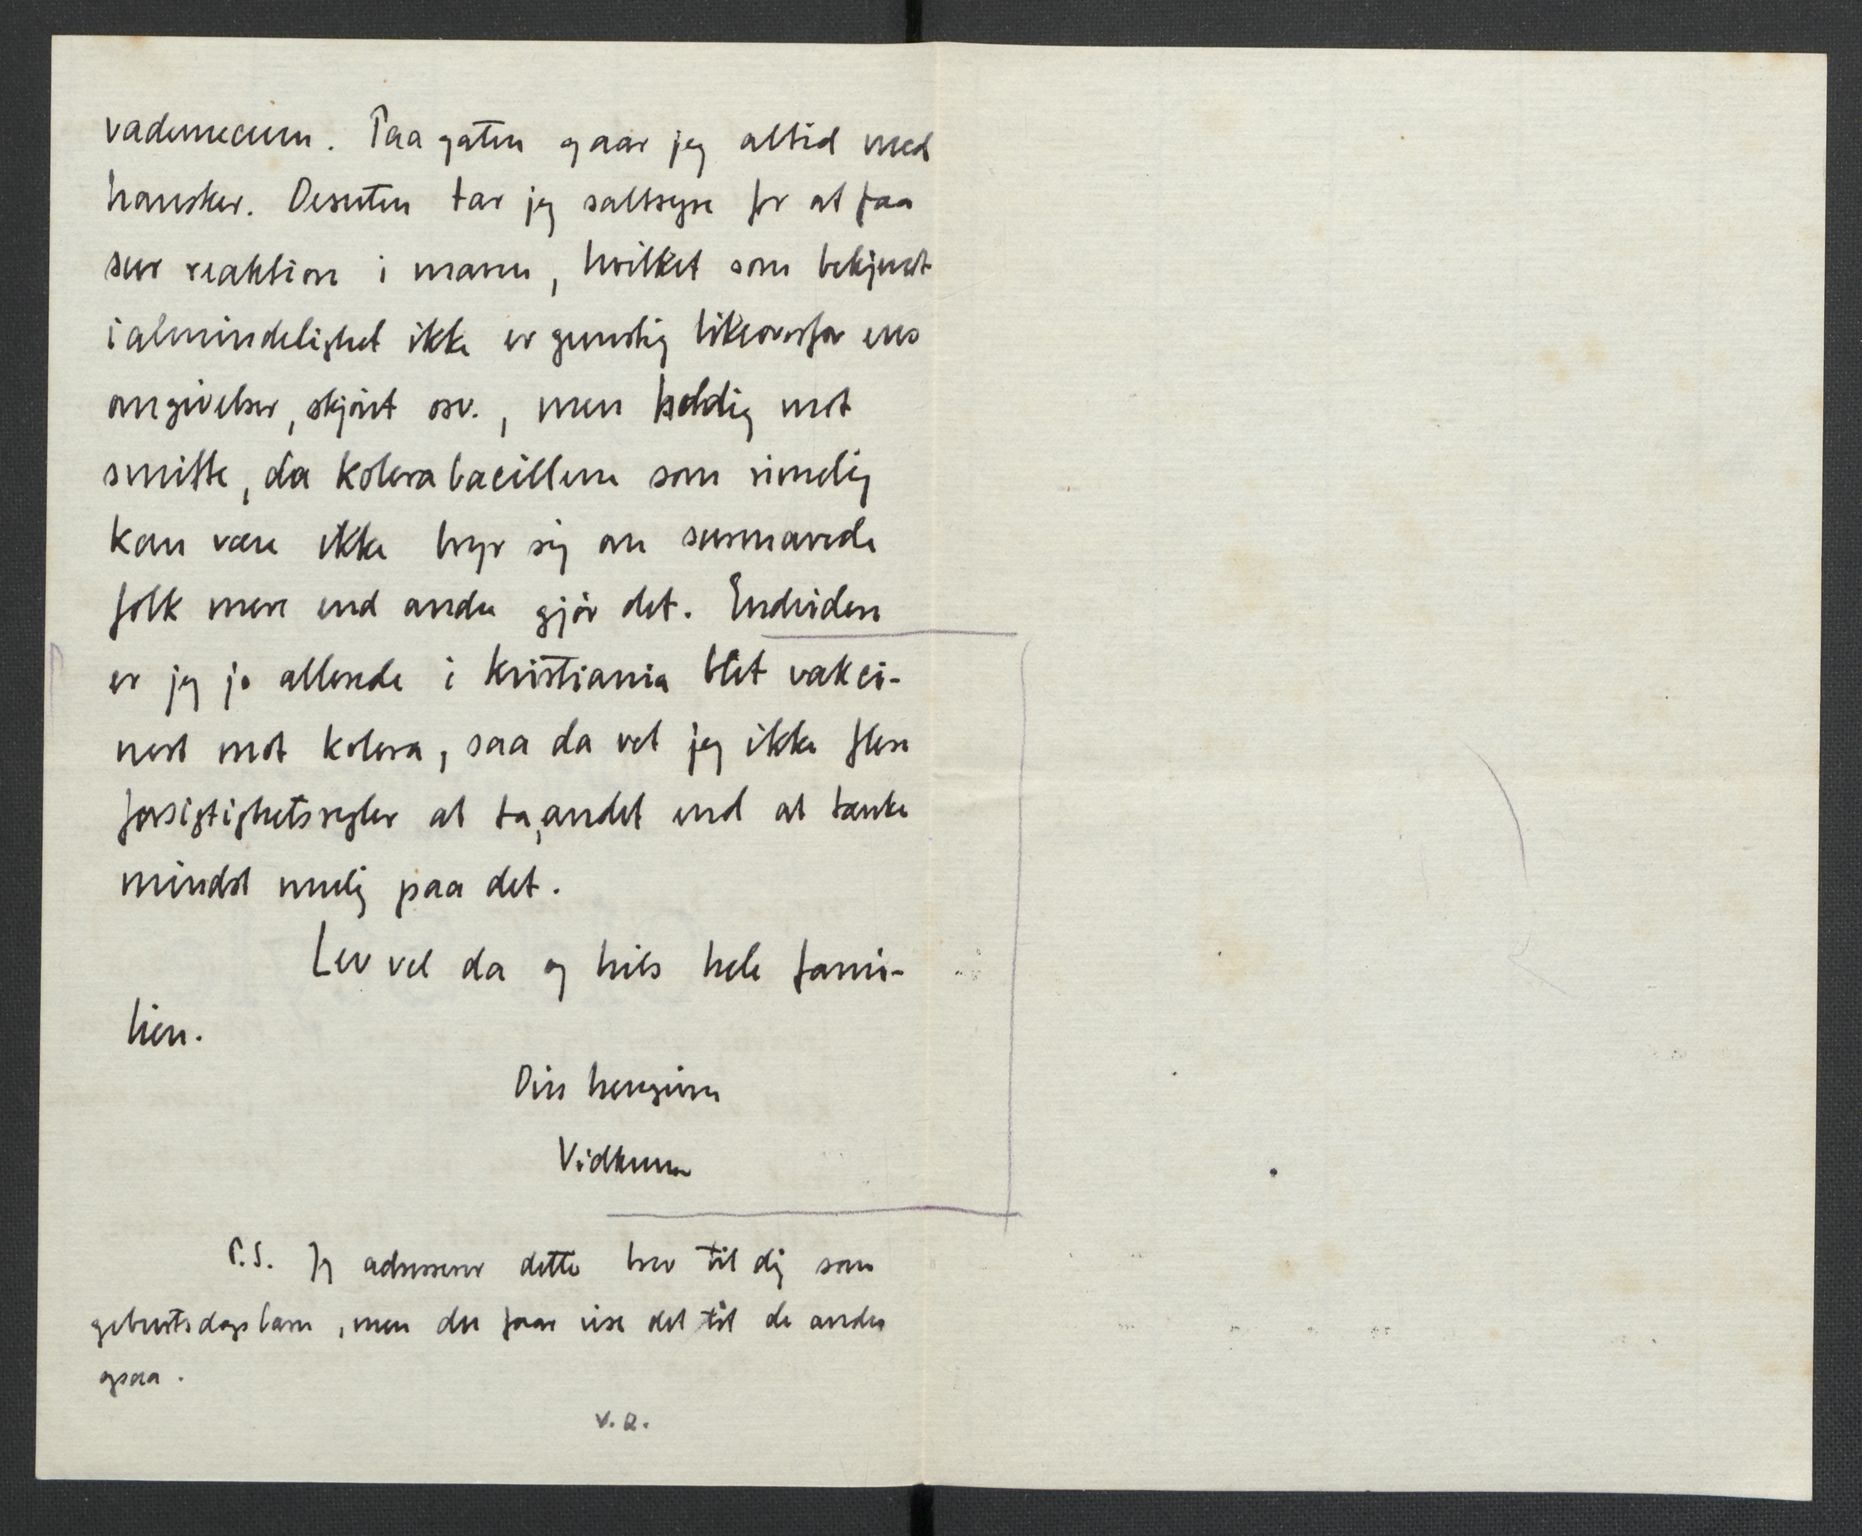 vademecum. Paa gaten gaar jeg altid med
hansker. Desuten tar jeg saltsyre for at faa
sur reaktion i maven, hvilket som bekjendt
i almindelighet ikke er gunstig likeoverfor ens
omgivelser, skjønt osv., men heldig mot
smitte, da kolerabacillerne som rimelig
kan være ikke bryr sig om surmavede
folk mere end andre gjør det. Endvidere
er jeg jo allerede i Kristiania blit vakci-
nert mot kolera, saa da vet jeg ikke flere
forsigtighetsregler at ta, andet end at tænke
mindst mulig paa det.
Lev vel da og hils hele fami-
lien.
Din hengivne
Vidkun
P.S. Jeg adresserer dette brev til dig som
geburtsdagsbarn, men du faar vise det til de andre
ogsaa.
V.Q.